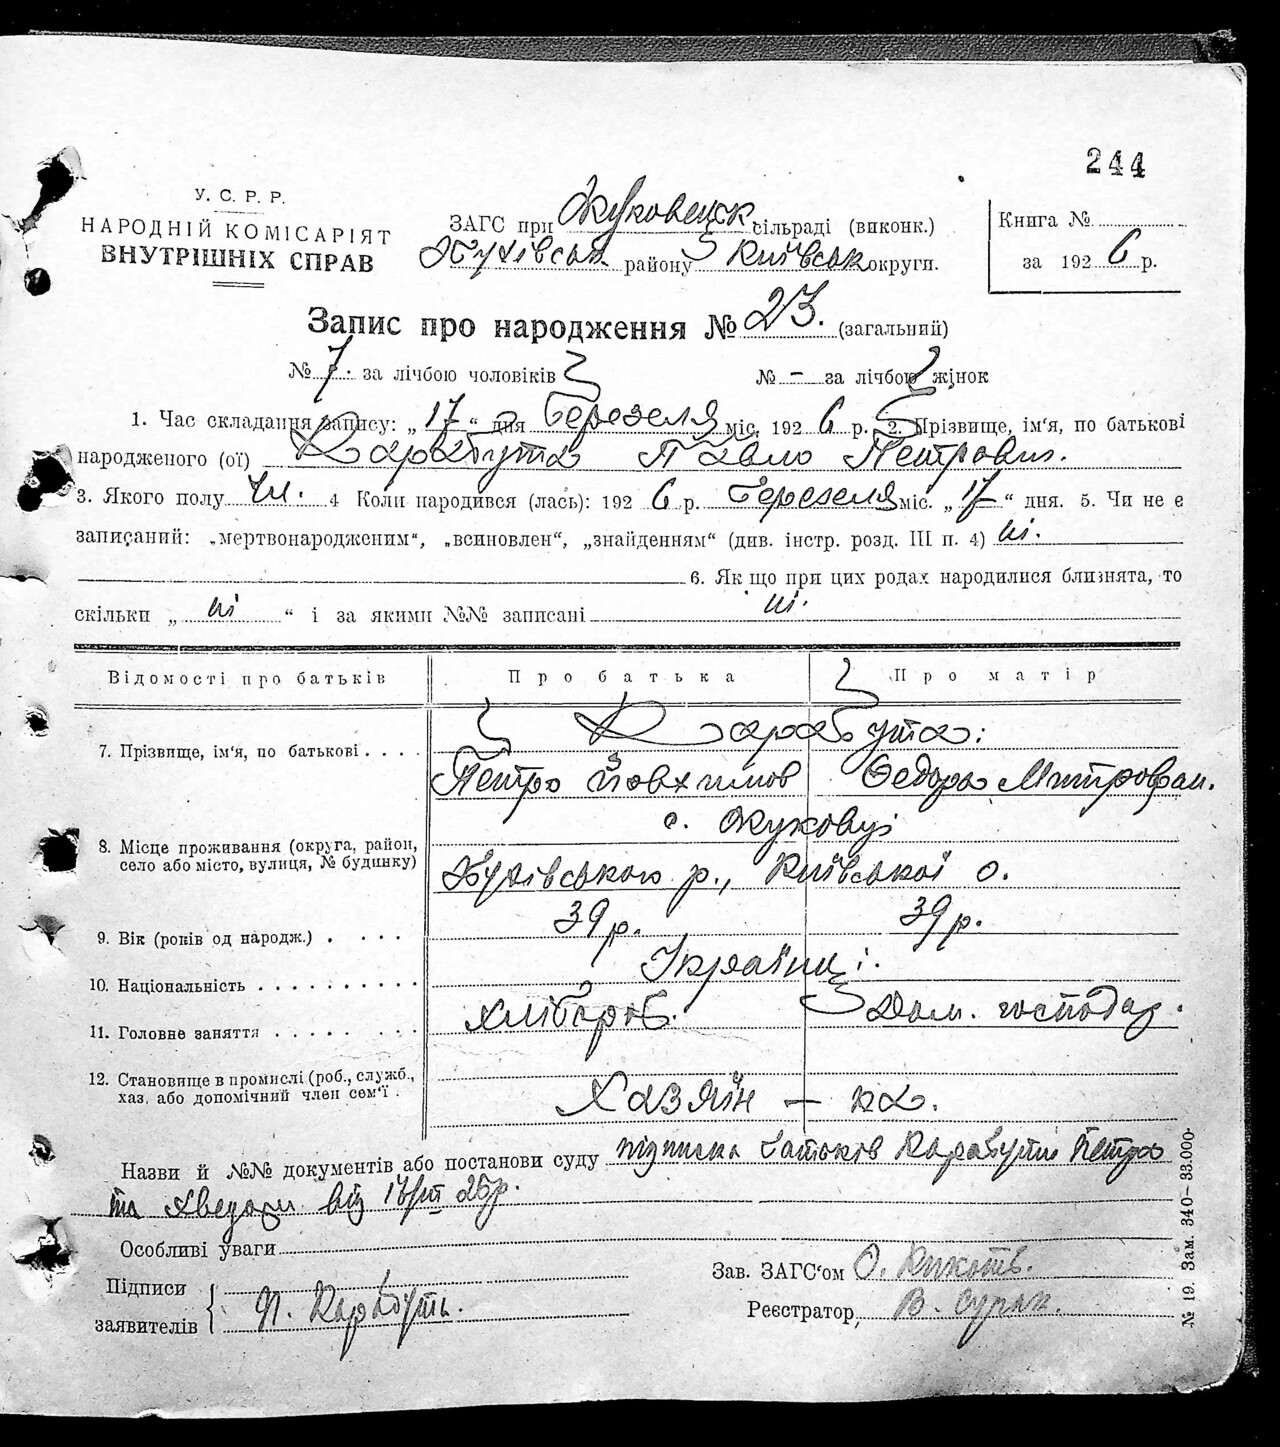 244
У. С. Р. Р.
НАРОДНІЙ КОМІСАРІЯТ
ВНУТРІШНІХ СПРАВ
ЗАГС при Жуковецьк сільраді (виконк.)
Обухівськ району Київськ округи.
Книга №
за 1926 р.
Запис про народження № 23. (загальний)
№ 7. за лічбою чоловіків
№ - за лічбою жінок
1. Час складання запису: „17“ дня Березеля міс. 1926 р. 2. Прізвище, ім'я, по батькові
народженого (ої) Карабута Павло Петрович.
3. Якого полу чл. 4 Коли народився (лась): 1926 р. Березеля міс. „17“ дня. 5. Чи не є
записаний: „мертвонародженим“, „всиновлен“, „знайденням“ (див. інстр. розд. III п. 4) ні.
6. Як що при цих родах народилися близнята, то
скільки „ ні “ і за якими №№ записані ні.
Відомості про батьків
Про батька
Про матір
7. Прізвище, ім'я, по батькові . . . .
Карабута:
Петро Йовхимов
Федора Митрофан.
8. Місце проживання (округа, район,
село або місто, вулиця, № будинку)
с. Жуковці
Обухівського р., Київської о.
9. Вік (років од народж.) . . . . .
39 р.
39 р.
10. Національність . . . . . . . . . .
Українці.
11. Головне заняття . . . . . . . . .
Хлібороб.
Дом. господар.
12. Становище в промислі (роб., служб.,
хаз. або допомічний член сем'ї .
Хазяїн — ка.
Назви й №№ документів або постанови суду підписка батьків Карабути Петра
та Хведори від 17/III 26 р.
Особливі уваги
Підписи
заявителів
П. Карабута.
Зав. ЗАГС'ом О.
Реєстратор, В.
№ 19. Зам. 340–33.000·